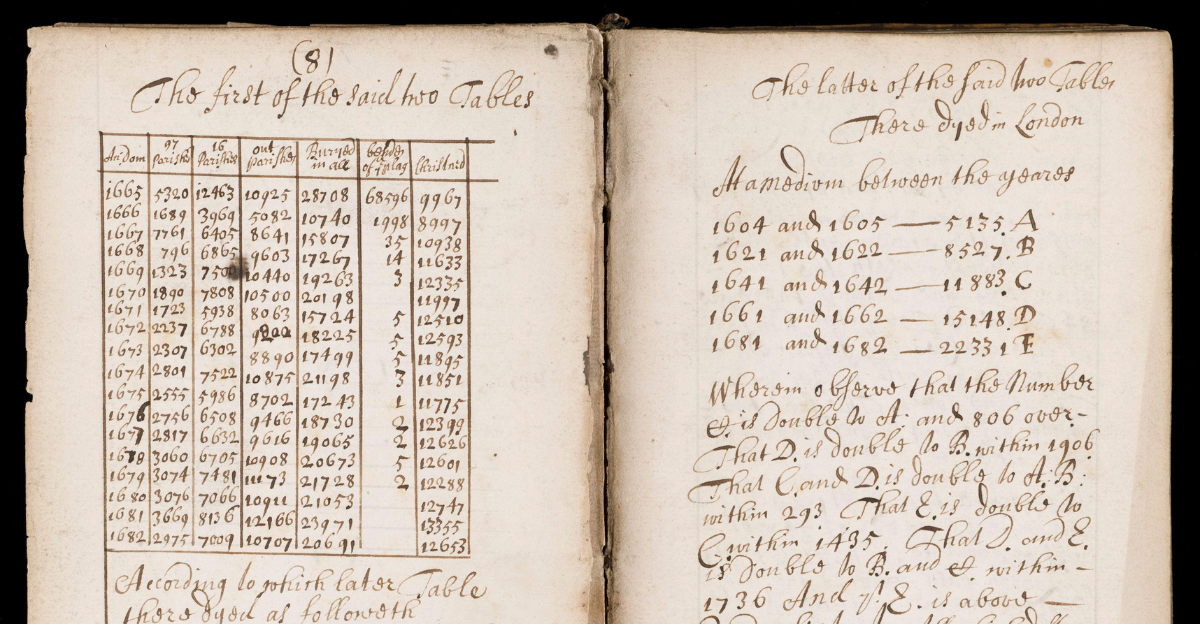 (8)
The first of the said two Tables
An: Dom 97 Parishes 16 Parishes out parishes Buryed in all besides of ye plag Christned
1665 5320 12463 10925 28708 68596 9967
1666 1689 3969 5082 10740 1998 8997
1667 7761 6405 8641 15807 35 10938
1668 796 6865 9603 17267 14 11633
1669 1323 7500 10440 19263 3 12335
1670 1890 7808 10500 20198 11997
1671 1723 5938 8063 15724 5 12510
1672 2237 6788 9200 18225 5 12593
1673 2307 6302 8890 17499 5 11895
1674 2801 7522 10875 21198 3 11851
1675 2555 5986 8702 17243 1 11775
1676 2756 6508 9466 18730 2 12399
1677 2817 6632 9616 19065 2 12626
1678 3060 6705 10908 20673 5 12601
1679 3074 7481 11173 21728 2 12288
1680 3076 7066 10911 21053 12747
1681 3669 8136 12166 23971 13355
1682 2975 7009 10707 20691 12653
According to which later Table
there dyed as followeth
The latter of the said two Tables
There dyed in London
At a medium between the yeares
1604 and 1605 — 5135. A
1621 and 1622 — 8527. B
1641 and 1642 — 11883. C
1661 and 1662 — 15148. D
1681 and 1682 — 22331 E
Wherein observe that the Number
C. is double to A. and 806 over-
That D. is double to B. within 1906
That C. and D. is double to A: B:
within 293 That E. is double to
C. within 1435. That D. and E.
is double to B. and C. within –
1736 And yt. E. is above —